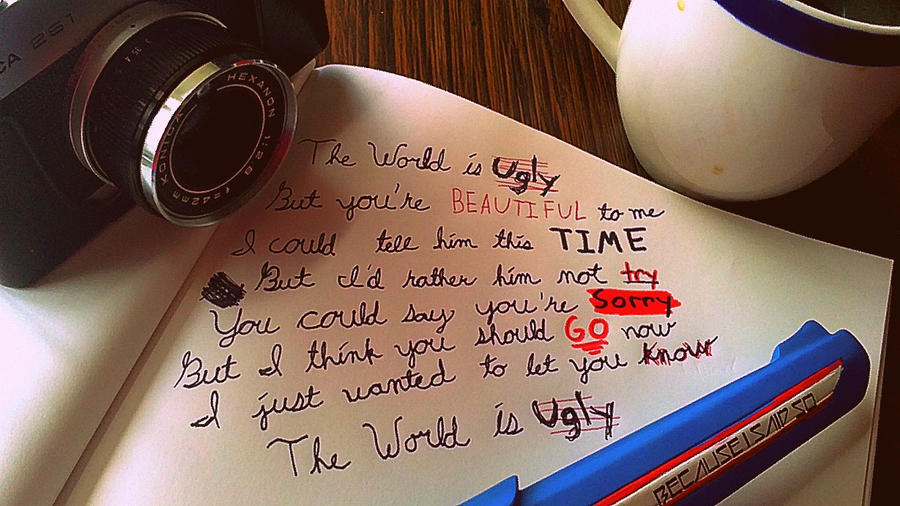 CA 261
HEXANON 1:2.8 f=42mm KONICA
The World is Ugly
But you're BEAUTIFUL to me
I could tell him this TIME
But I'd rather him not try
You could say you're Sorry
But I think you should GO now
I just wanted to let you know
The World is Ugly
BECAUSE I SAID SO